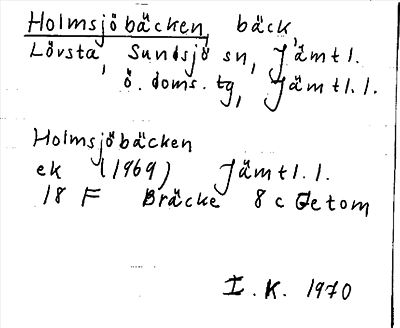 Holmsjöbäcken, bäck
Lövsta, Sundsjö sn, Jämtl.
ö. doms. tg, Jämtl. l.
Holmsjöbäcken
ek (1969) Jämtl. l.
18 F Bräcke 8 c Getom
I. K. 1970